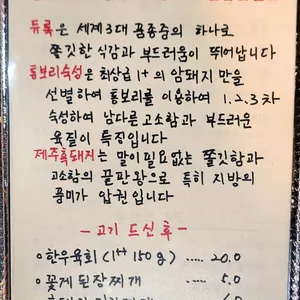 듀록은 세계3대 품종중의 하나로
쫄깃한 식감과 부드러움이 뛰어납니다
통보리숙성은 최상급 1+의 암돼지만을
선별하여 통보리를 이용하여 1.2.3차
숙성하여 남다른 고소함과 부드러운
육질이 특징입니다
제주흑돼지는 말이필요없는 쫄깃함과
고소함의 끝판왕으로 특히 지방의
풍미가 압권입니다
-고기 드신 후-
◦한우육회(1++ 150g) ..... 20.0
◦꽃게 된장찌개 ..... 5.0